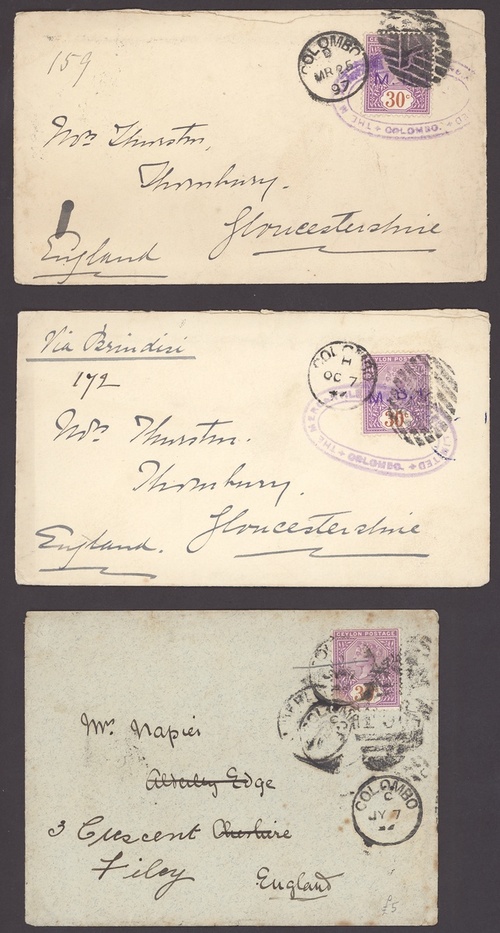 159
COLOMBO
MR 25
97
30c
THE M
COLOMBO.
Mrs Thurston,
Thornbury.
Gloucestershire
England
Via Brindisi
172
COLOMBO
H
OC 7
CEYLON POSTAGE
30c
THE MERC
LIMITED
COLOMBO.
Mrs Thurston.
Thornbury.
Gloucestershire
England.
CEYLON POSTAGE
Mr. Napier
Alderley Edge
3 Crescent Cheshire
Filey
England
COLOMBO
C
JY 7
£5